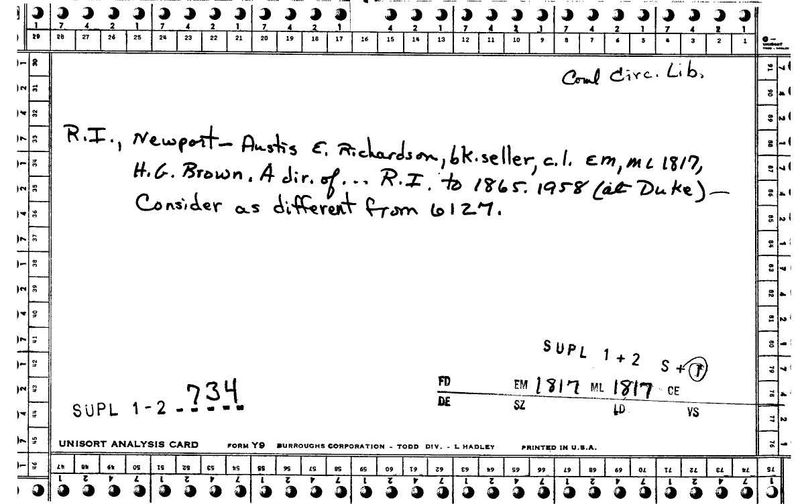 Coml Circ. Lib.
R.I., Newport — Austis E. Richardson, bk.seller, c.l. EM, ML 1817,
H.G. Brown. A dir. of... R.I. to 1865. 1958 (at Duke) —
Consider as different from 6127.
SUPL 1 + 2 S + 1
FD EM 1817 ML 1817 CE
SUPL 1-2 734
DE SZ LD VS
UNISORT ANALYSIS CARD FORM Y9 BURROUGHS CORPORATION - TODD DIV. - L HADLEY PRINTED IN U.S.A.